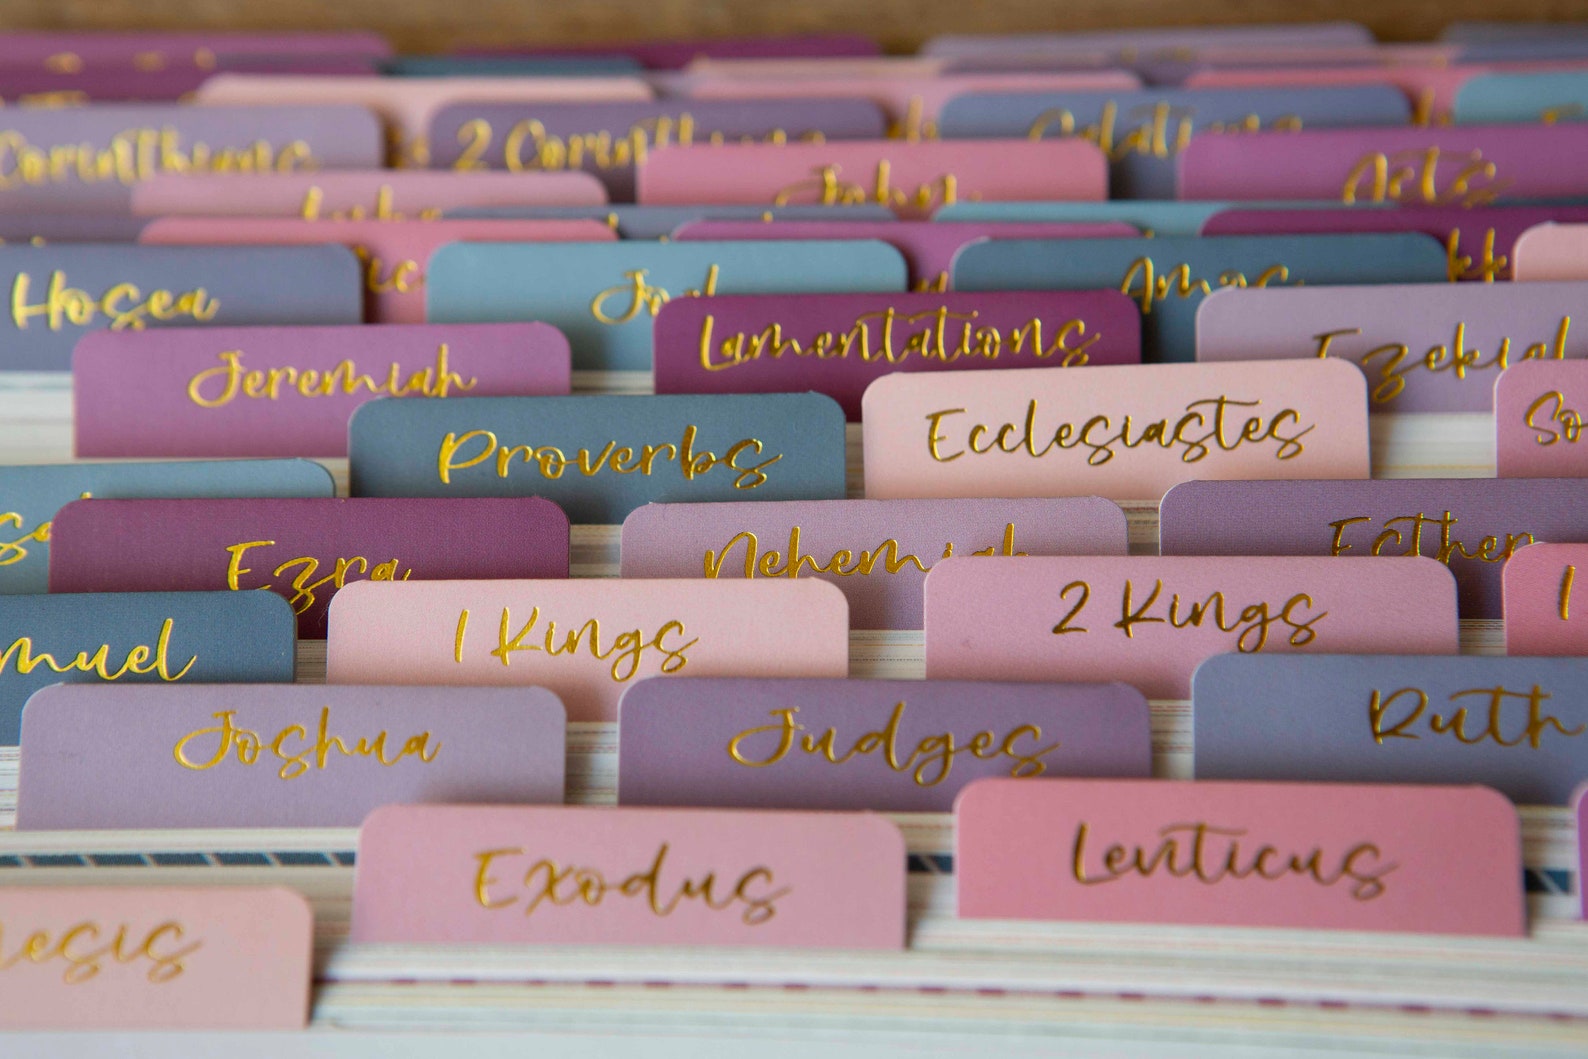 Corinthians
2 Corinthians
Galatians
John
Acts
Luke
Hosea
Joel
Amos
Jeremiah
Lamentations
Ezekiel
Proverbs
Ecclesiastes
So
Ezra
Nehemiah
Esther
muel
1 Kings
2 Kings
1
Joshua
Judges
Ruth
Exodus
Leviticus
nesis